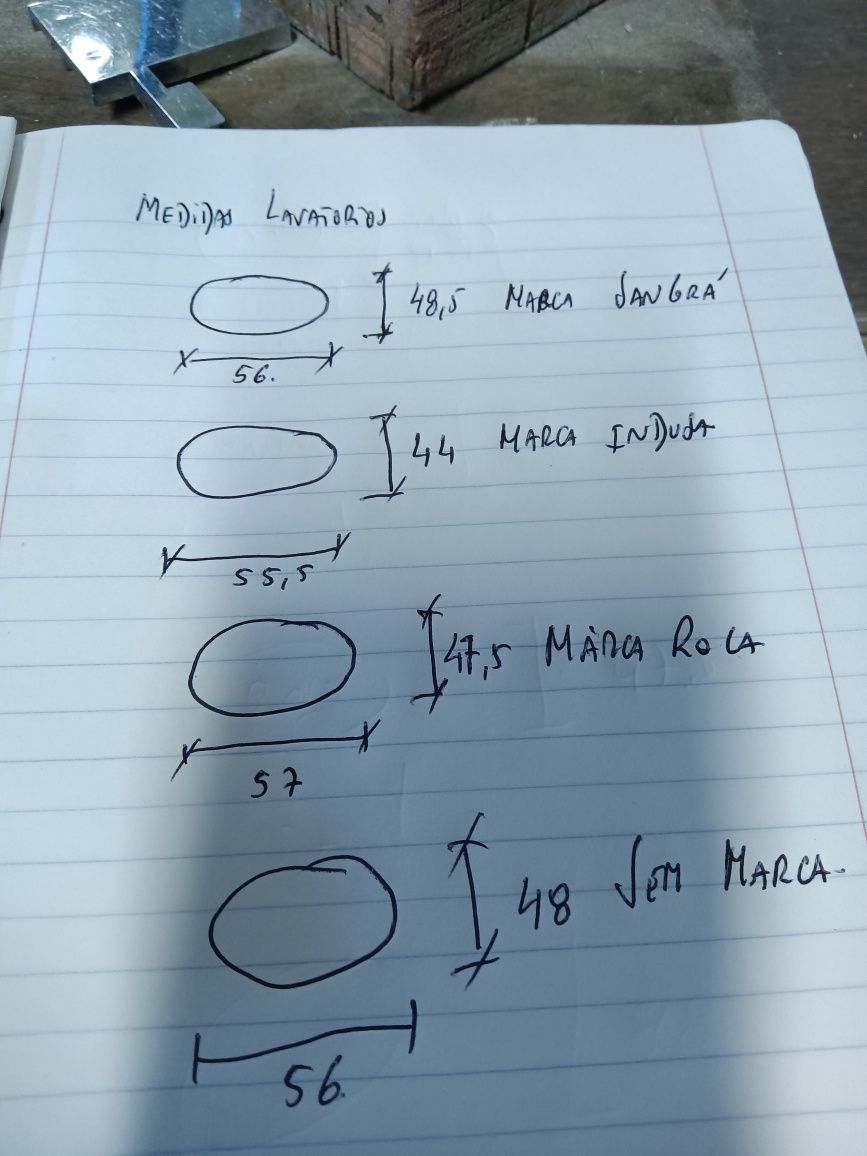 MEDIDAS LAVATORIOS
48,5 MARCA SANGRÁ
56.
44 MARCA INDUSA
55,5
47,5 MARCA ROCA
57
48 SEM MARCA
56